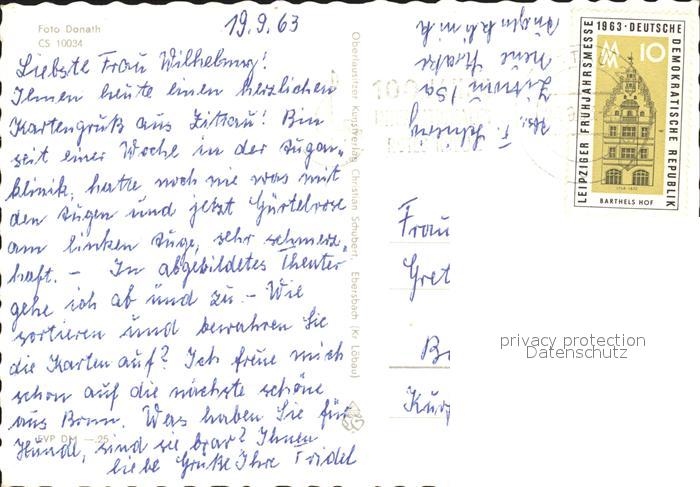 Foto Donath
CS 10034
19.9.63
Liebste Frau Wilhelmy!
Ihnen heute einen herzlichen
Kartengruß aus Zittau! Bin
seit einer Woche in der Augen-
klinik, hatte noch nie was mit
den Augen und jetzt Gürtelrose
am linken Auge, sehr schmerz-
haft. – In abgebildetes Theater
gehe ich ab und zu. – Wie
sortieren und bewahren Sie
die Karten auf? Ich freue mich
schon auf die nächste schöne
aus Bonn. Was haben Sie für
Hunde, sind sie brav? Ihnen
liebe Grüße Ihre Fridel
EVP DM –.25
Oberlausitzer Kunstverlag Christian Schubert, Ebersbach (Kr Löbau)
Abs. F.
Zittau /Sa
Neue
Augenklinik
100
LEIPZIGER FRÜHJAHRSMESSE 1963 · DEUTSCHE DEMOKRATISCHE REPUBLIK
MM 10
BARTHELS HOF
Frau
Gret
privacy protection
Datenschutz